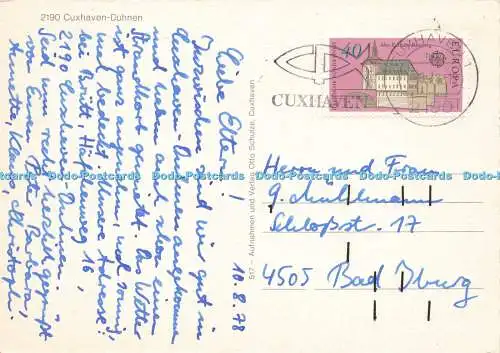 2190 Cuxhaven-Duhnen
10.8.78
Liebe Eltern!
Inzwischen sind wir gut in
Cuxhaven-Duhnen angekommen
und haben auch schon einen
Strandkorb gemietet. Das Wetter
ist ganz angenehm, nur wenig
bedeckt. Unsere Adresse:
bei Brütt, 16,
2190 Cuxhaven-Duhnen.
Seid nun recht herzlich gegrüßt
von Eurer Barbara,
Annette, Klaus, Christoph
517 – Aufnahmen und Verlag: Otto Schulze, Cuxhaven
CUXHAVEN
40
EUROPA
CUXHAVEN 1
Herrn und Frau
Schloßstr. 17
4505 Bad Iburg
Dodo-Postcards Dodo-Postcards Dodo-Postcards Dodo-Postcards Dodo-Postcards Dodo-Postcards